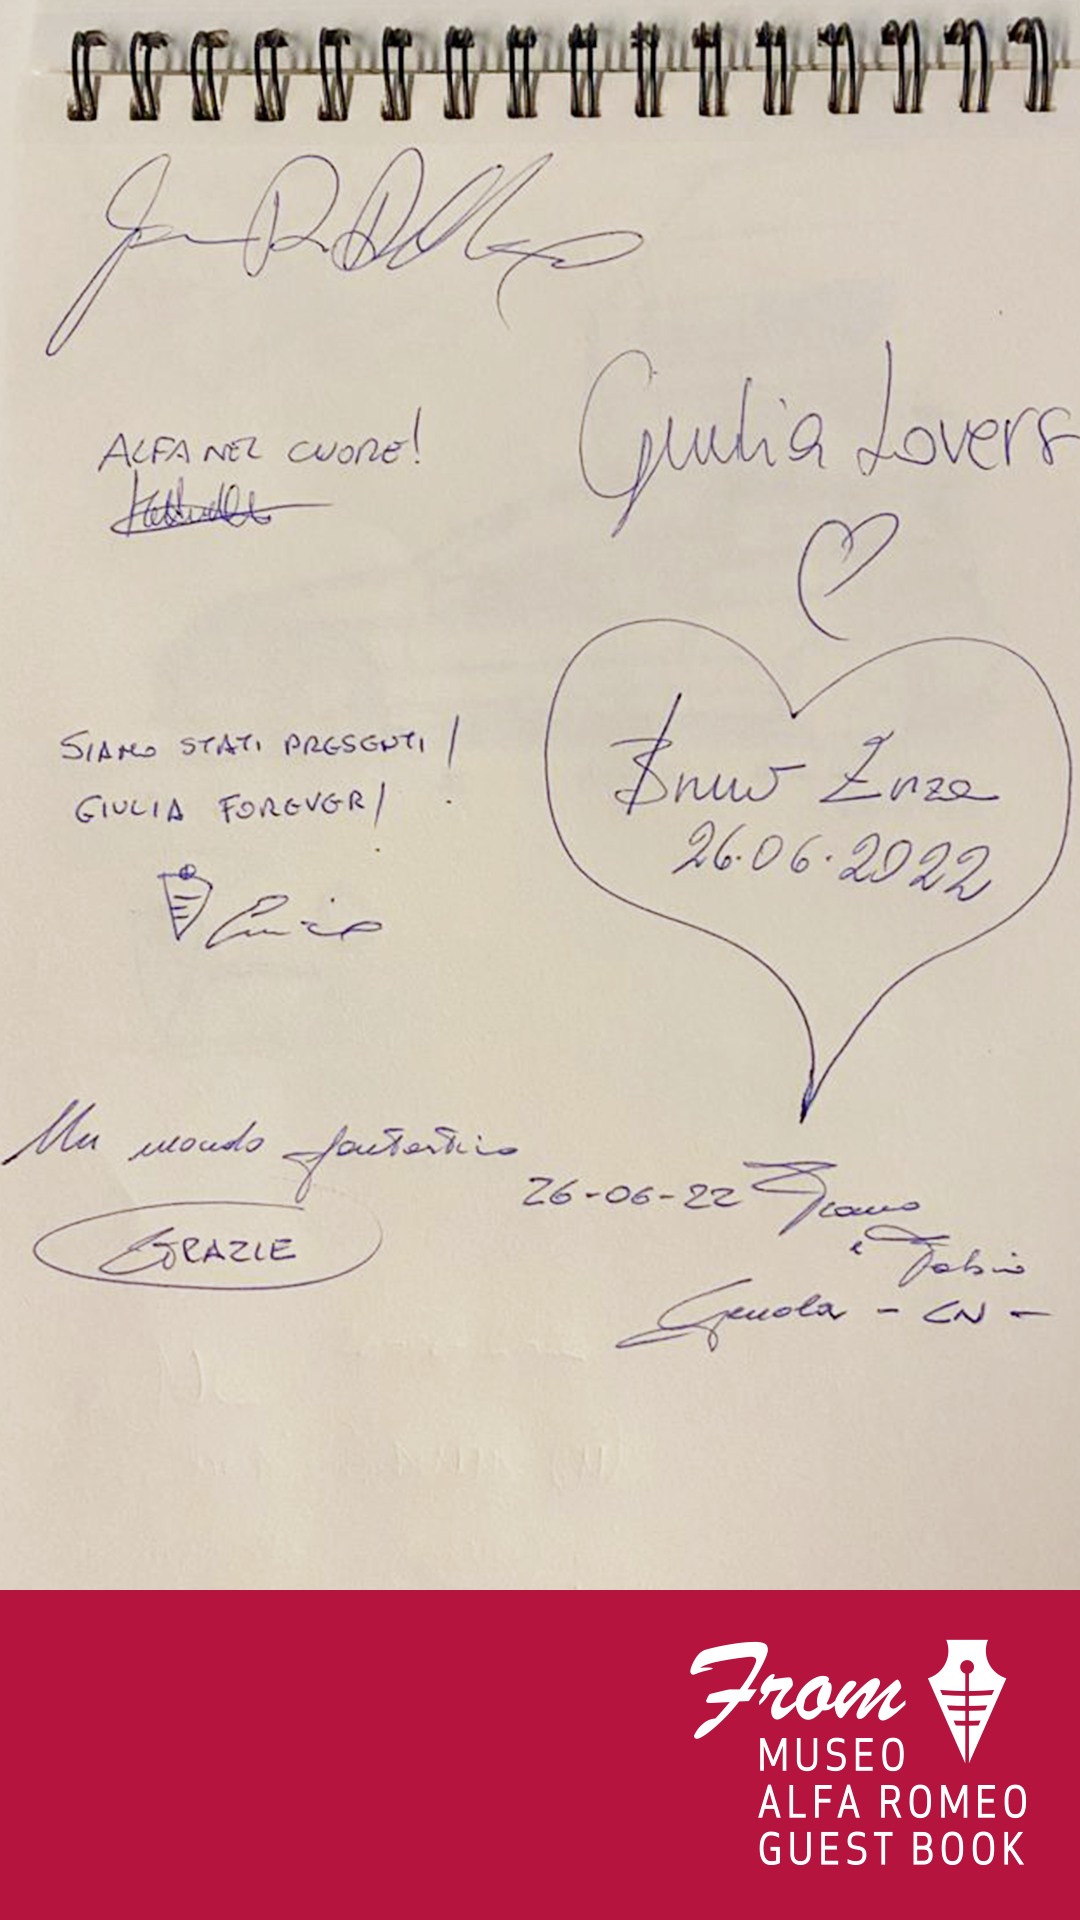 ALFA NEL CUORE!
Giulia Lovers
SIAMO STATI PRESENTI!
GIULIA FOREVER!
Bruno Enza
26.06.2022
Un mondo fantastico
GRAZIE
26-06-22
e Fabio
Genola - CN -
From
MUSEO
ALFA ROMEO
GUEST BOOK